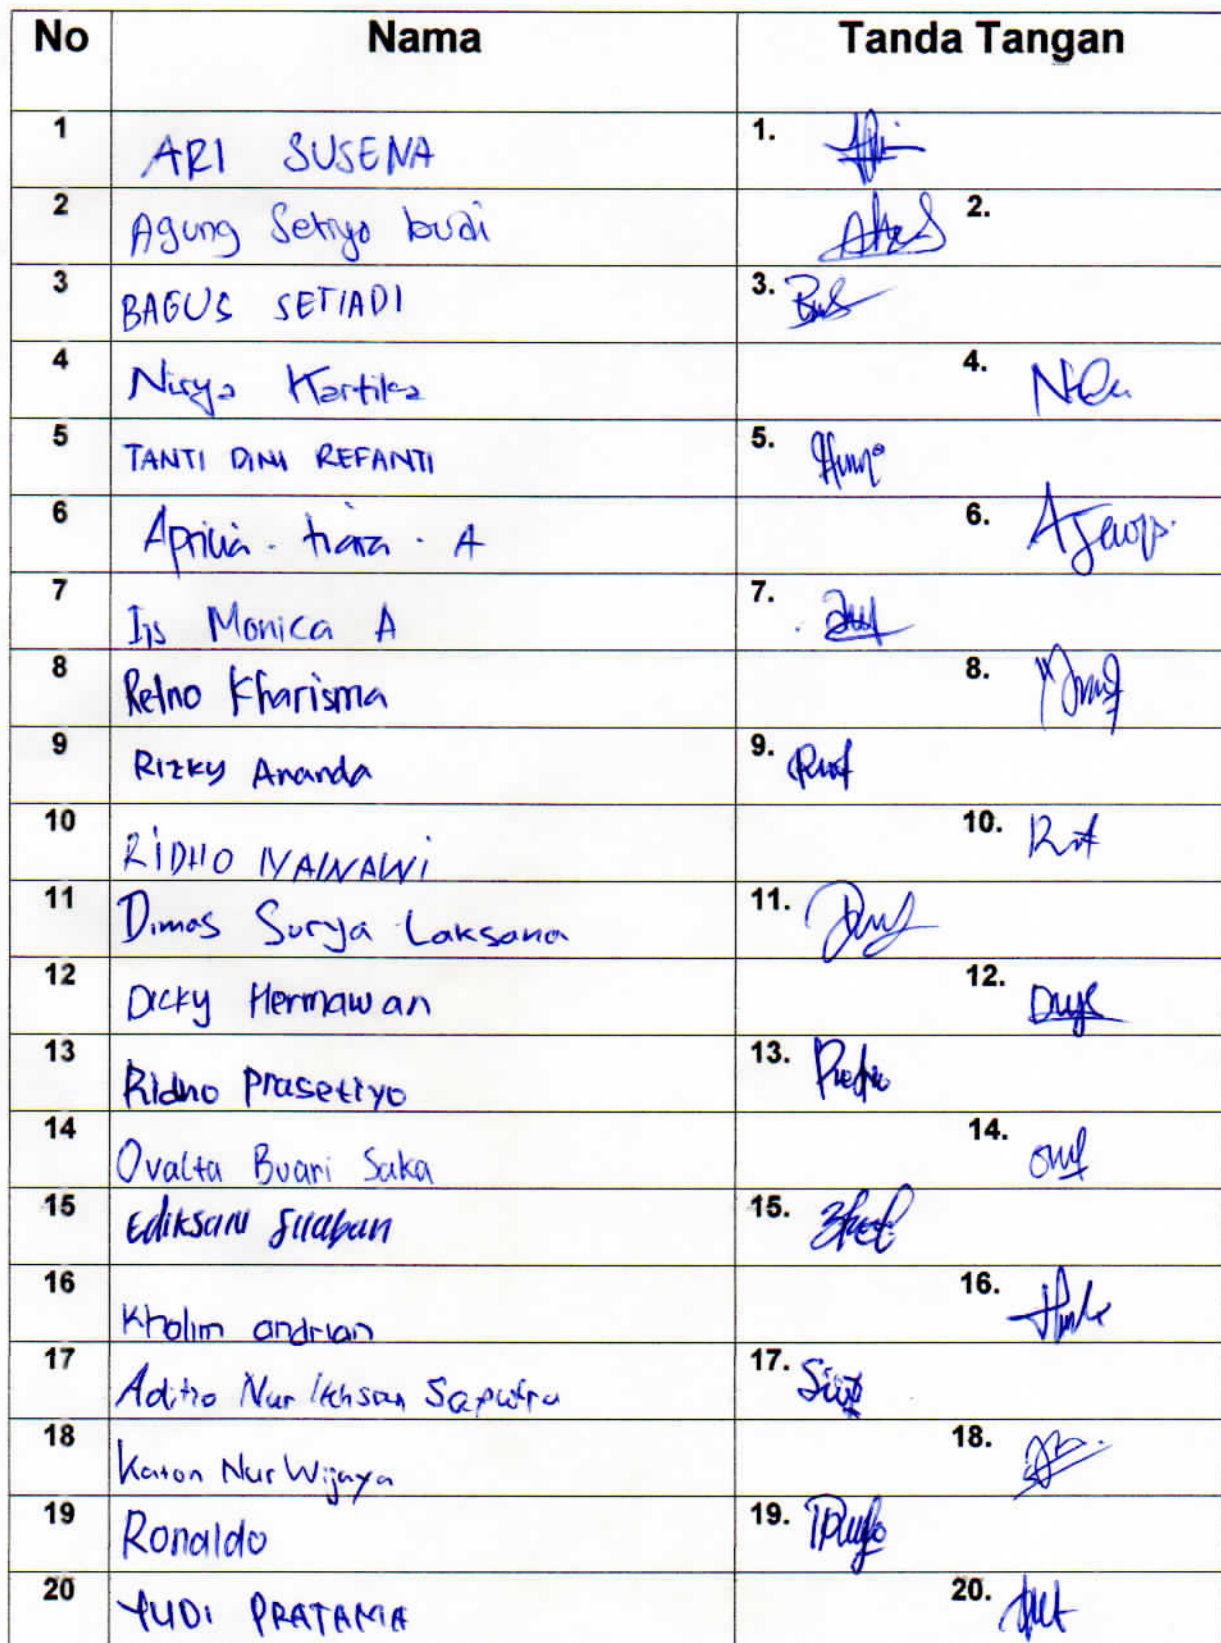 No Nama Tanda Tangan
1 ARI SUSENA 1.
2 Agung Setiyo budi 2.
3 BAGUS SETIADI 3.
4 Nisya Kartika 4.
5 TANTI DINI REFANTI 5.
6 Aprilia - tiara - A 6.
7 Iis Monica A 7.
8 Retno Kharisma 8.
9 Rizky Ananda 9.
10 RIDHO 10.
11 Dimas Surya Laksana 11.
12 Dicky Hermawan 12.
13 Ridho Prasetiyo 13.
14 Ovalta Buari Saka 14.
15 Ediksan 15.
16 Kholim andrian 16.
17 Aditio Nur Ikhsan Saputra 17.
18 Katon Nur Wijaya 18.
19 Ronaldo 19.
20 YUDI PRATAMA 20.